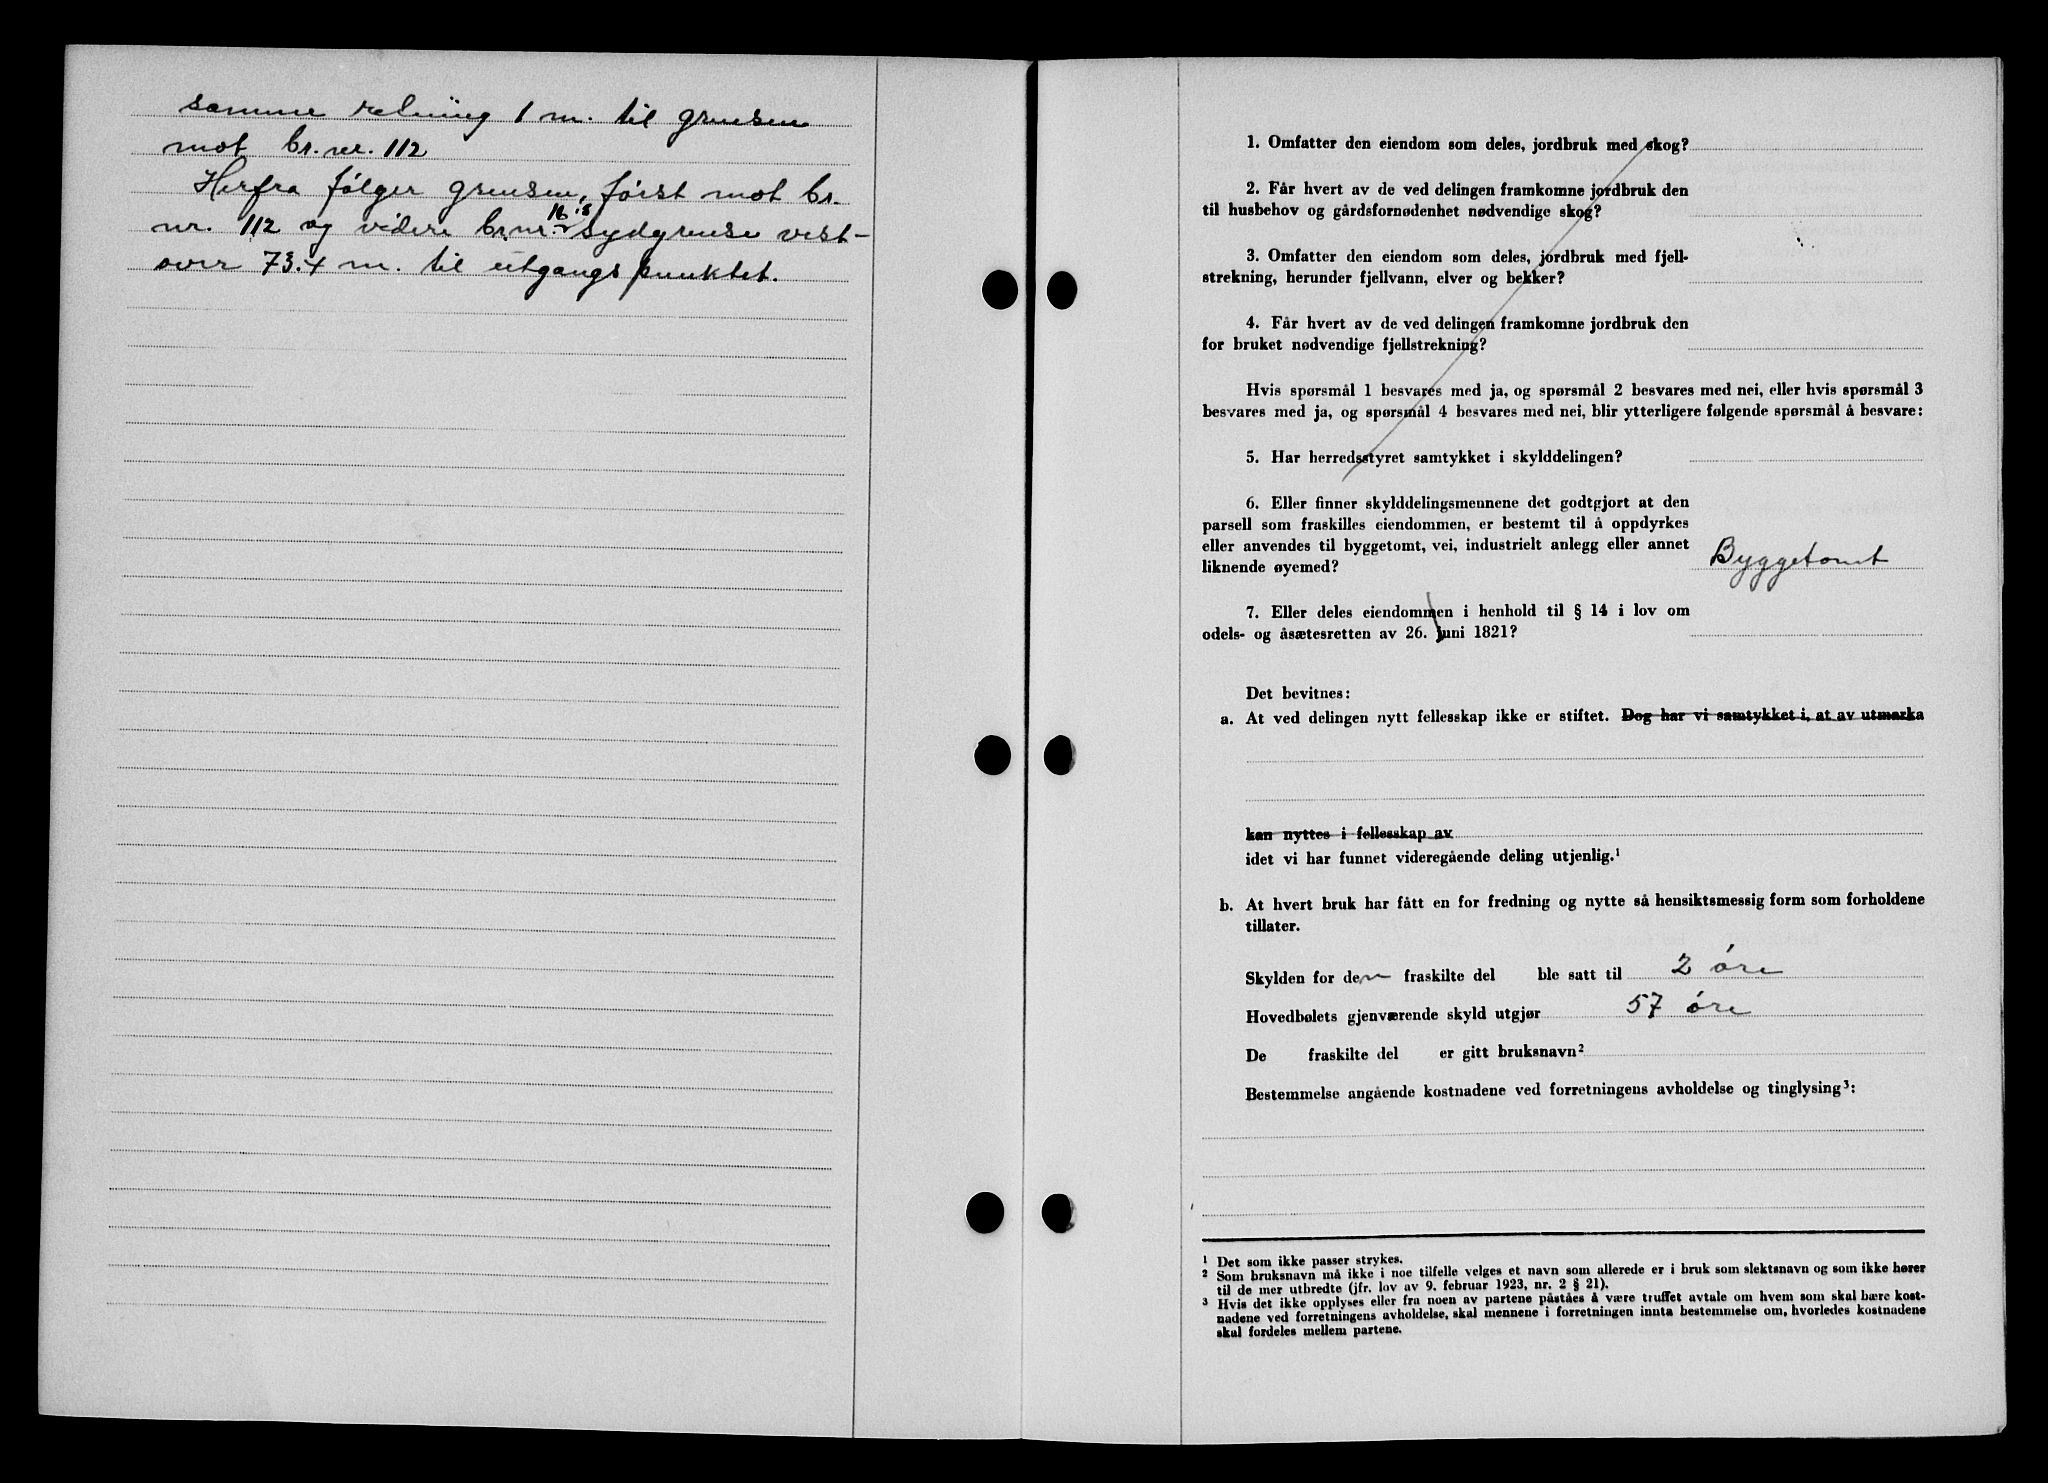 samme retning 1 m. til grensen
mot br. nr. 112
Herfra følger grensen, først mot br.
16's
nr. 112 og videre br. nr. sydgrense vest-
over 73.4 m. til utgangspunktet.
1. Omfatter den eiendom som deles, jordbruk med skog?
2. Får hvert av de ved delingen framkomne jordbruk den
til husbehov og gårdsfornødenhet nødvendige skog?
3. Omfatter den eiendom som deles, jordbruk med fjell-
strekning, herunder fjellvann, elver og bekker?
4. Får hvert av de ved delingen framkomne jordbruk den
for bruket nødvendige fjellstrekning?
Hvis spørsmål 1 besvares med ja, og spørsmål 2 besvares med nei, eller hvis spørsmål 3
besvares med ja, og spørsmål 4 besvares med nei, blir ytterligere følgende spørsmål å besvare:
5. Har herredsstyret samtykket i skylddelingen?
6. Eller finner skylddelingsmennene det godtgjort at den
parsell som fraskilles eiendommen, er bestemt til å oppdyrkes
eller anvendes til byggetomt, vei, industrielt anlegg eller annet
liknende øyemed? Byggetomt
7. Eller deles eiendommen i henhold til § 14 i lov om
odels- og åsætesretten av 26. juni 1821?
Det bevitnes:
a. At ved delingen nytt fellesskap ikke er stiftet. Dog har vi samtykket i, at av utmarka
kan nyttes i fellesskap av
idet vi har funnet videregående deling utjenlig.¹
b. At hvert bruk har fått en for fredning og nytte så hensiktsmessig form som forholdene
tillater.
Skylden for den fraskilte del ble satt til 2 øre
Hovedbølets gjenværende skyld utgjør 57 øre
De fraskilte del er gitt bruksnavn²
Bestemmelse angående kostnadene ved forretningens avholdelse og tinglysing³:
¹ Det som ikke passer strykes.
² Som bruksnavn må ikke i noe tilfelle velges et navn som allerede er i bruk som slektsnavn og som ikke hører
til de mer utbredte (jfr. lov av 9. februar 1923, nr. 2 § 21).
³ Hvis det ikke opplyses eller fra noen av partene påståes å være truffet avtale om hvem som skal bære kost-
nadene ved forretningens avholdelse, skal mennene i forretningen innta bestemmelse om, hvorledes kostnadene
skal fordeles mellem partene.